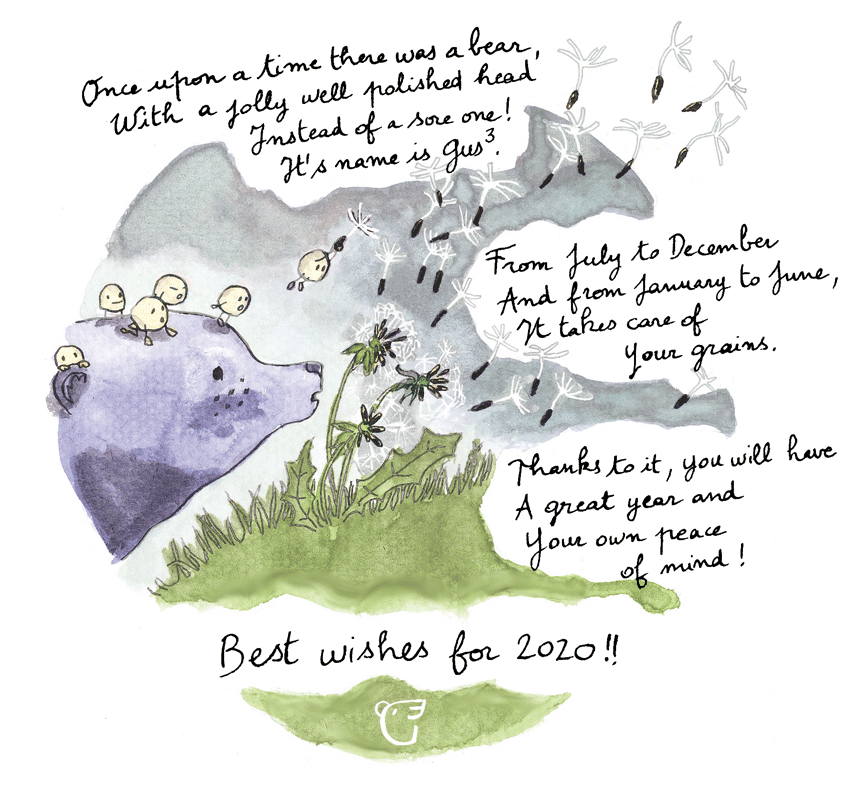 Once upon a time there was a bear,
With a jolly well polished head
Instead of a sore one!
It's name is Gus³.
From July to December
And from January to June,
It takes care of
Your grains.
Thanks to it, you will have
A great year and
Your own peace
of mind!
Best wishes for 2020!!